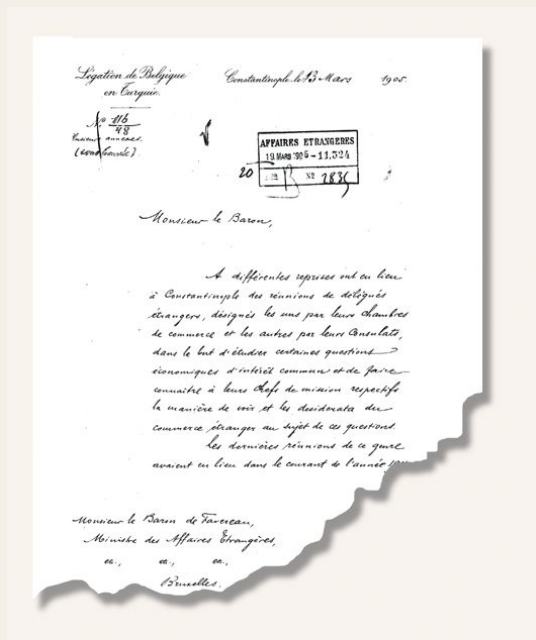 Légation de Belgique
en Turquie.
Constantinople, le 13 Mars 1905.
No 116
48
annexes.
AFFAIRES ETRANGERES
19 MARS 1905 - 11,324
20
No 2835
Monsieur le Baron,
A différentes reprises ont eu lieu
à Constantinople des réunions de délégués
étrangers, désignés les uns par leurs Chambres
de commerce et les autres par leurs Consulats,
dans le but d'étudier certaines questions
économiques d'intérêt commun et de faire
connaître à leurs Chefs de mission respectifs
la manière de voir et les desiderata du
commerce étranger au sujet de ces questions.
Les dernières réunions de ce genre
avaient eu lieu dans le courant de l'année
Monsieur le Baron de Favereau,
Ministre des Affaires Etrangères,
ea., ea., ea.,
Bruxelles.